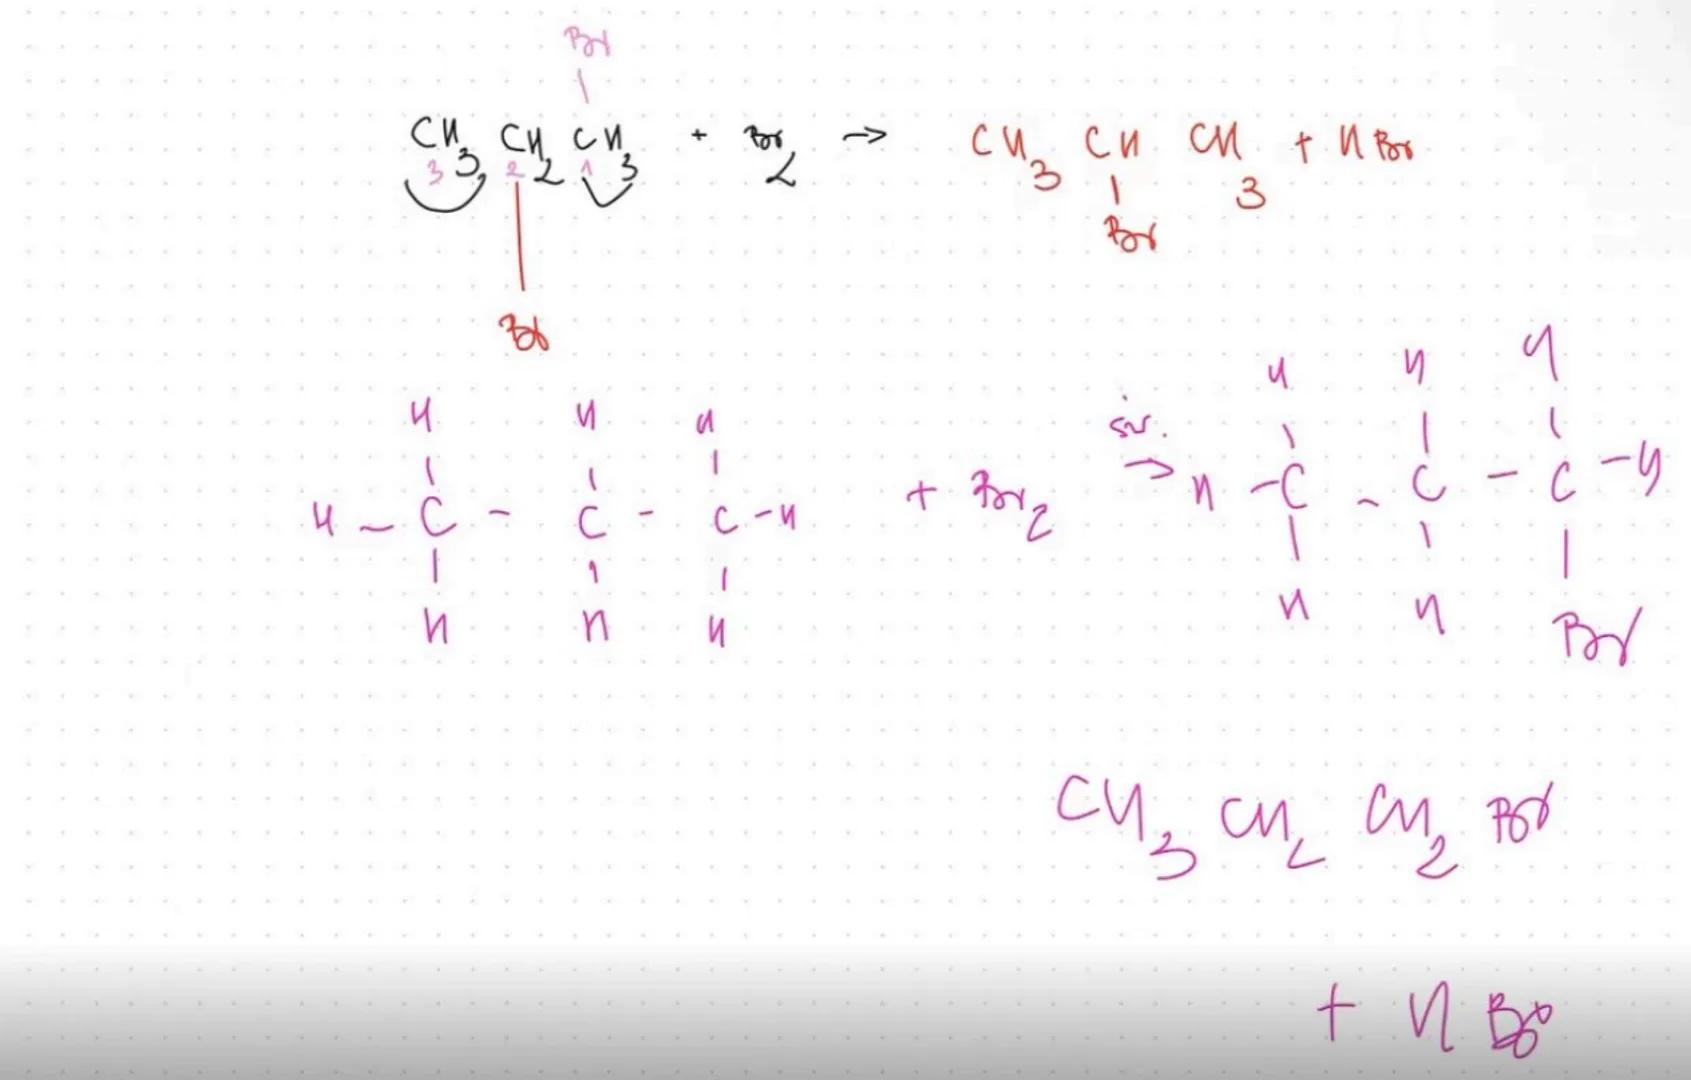 Br
CH3 CH2 CH3 + Br2 → CH3 CH CH3 + HBr
3 2 1
Br
Br
H H H
H – C – C – C – H + Br2 św. → H – C – C – C – H
H H H
H H H
H H Br
CH3 CH2 CH2 Br
+ H Br